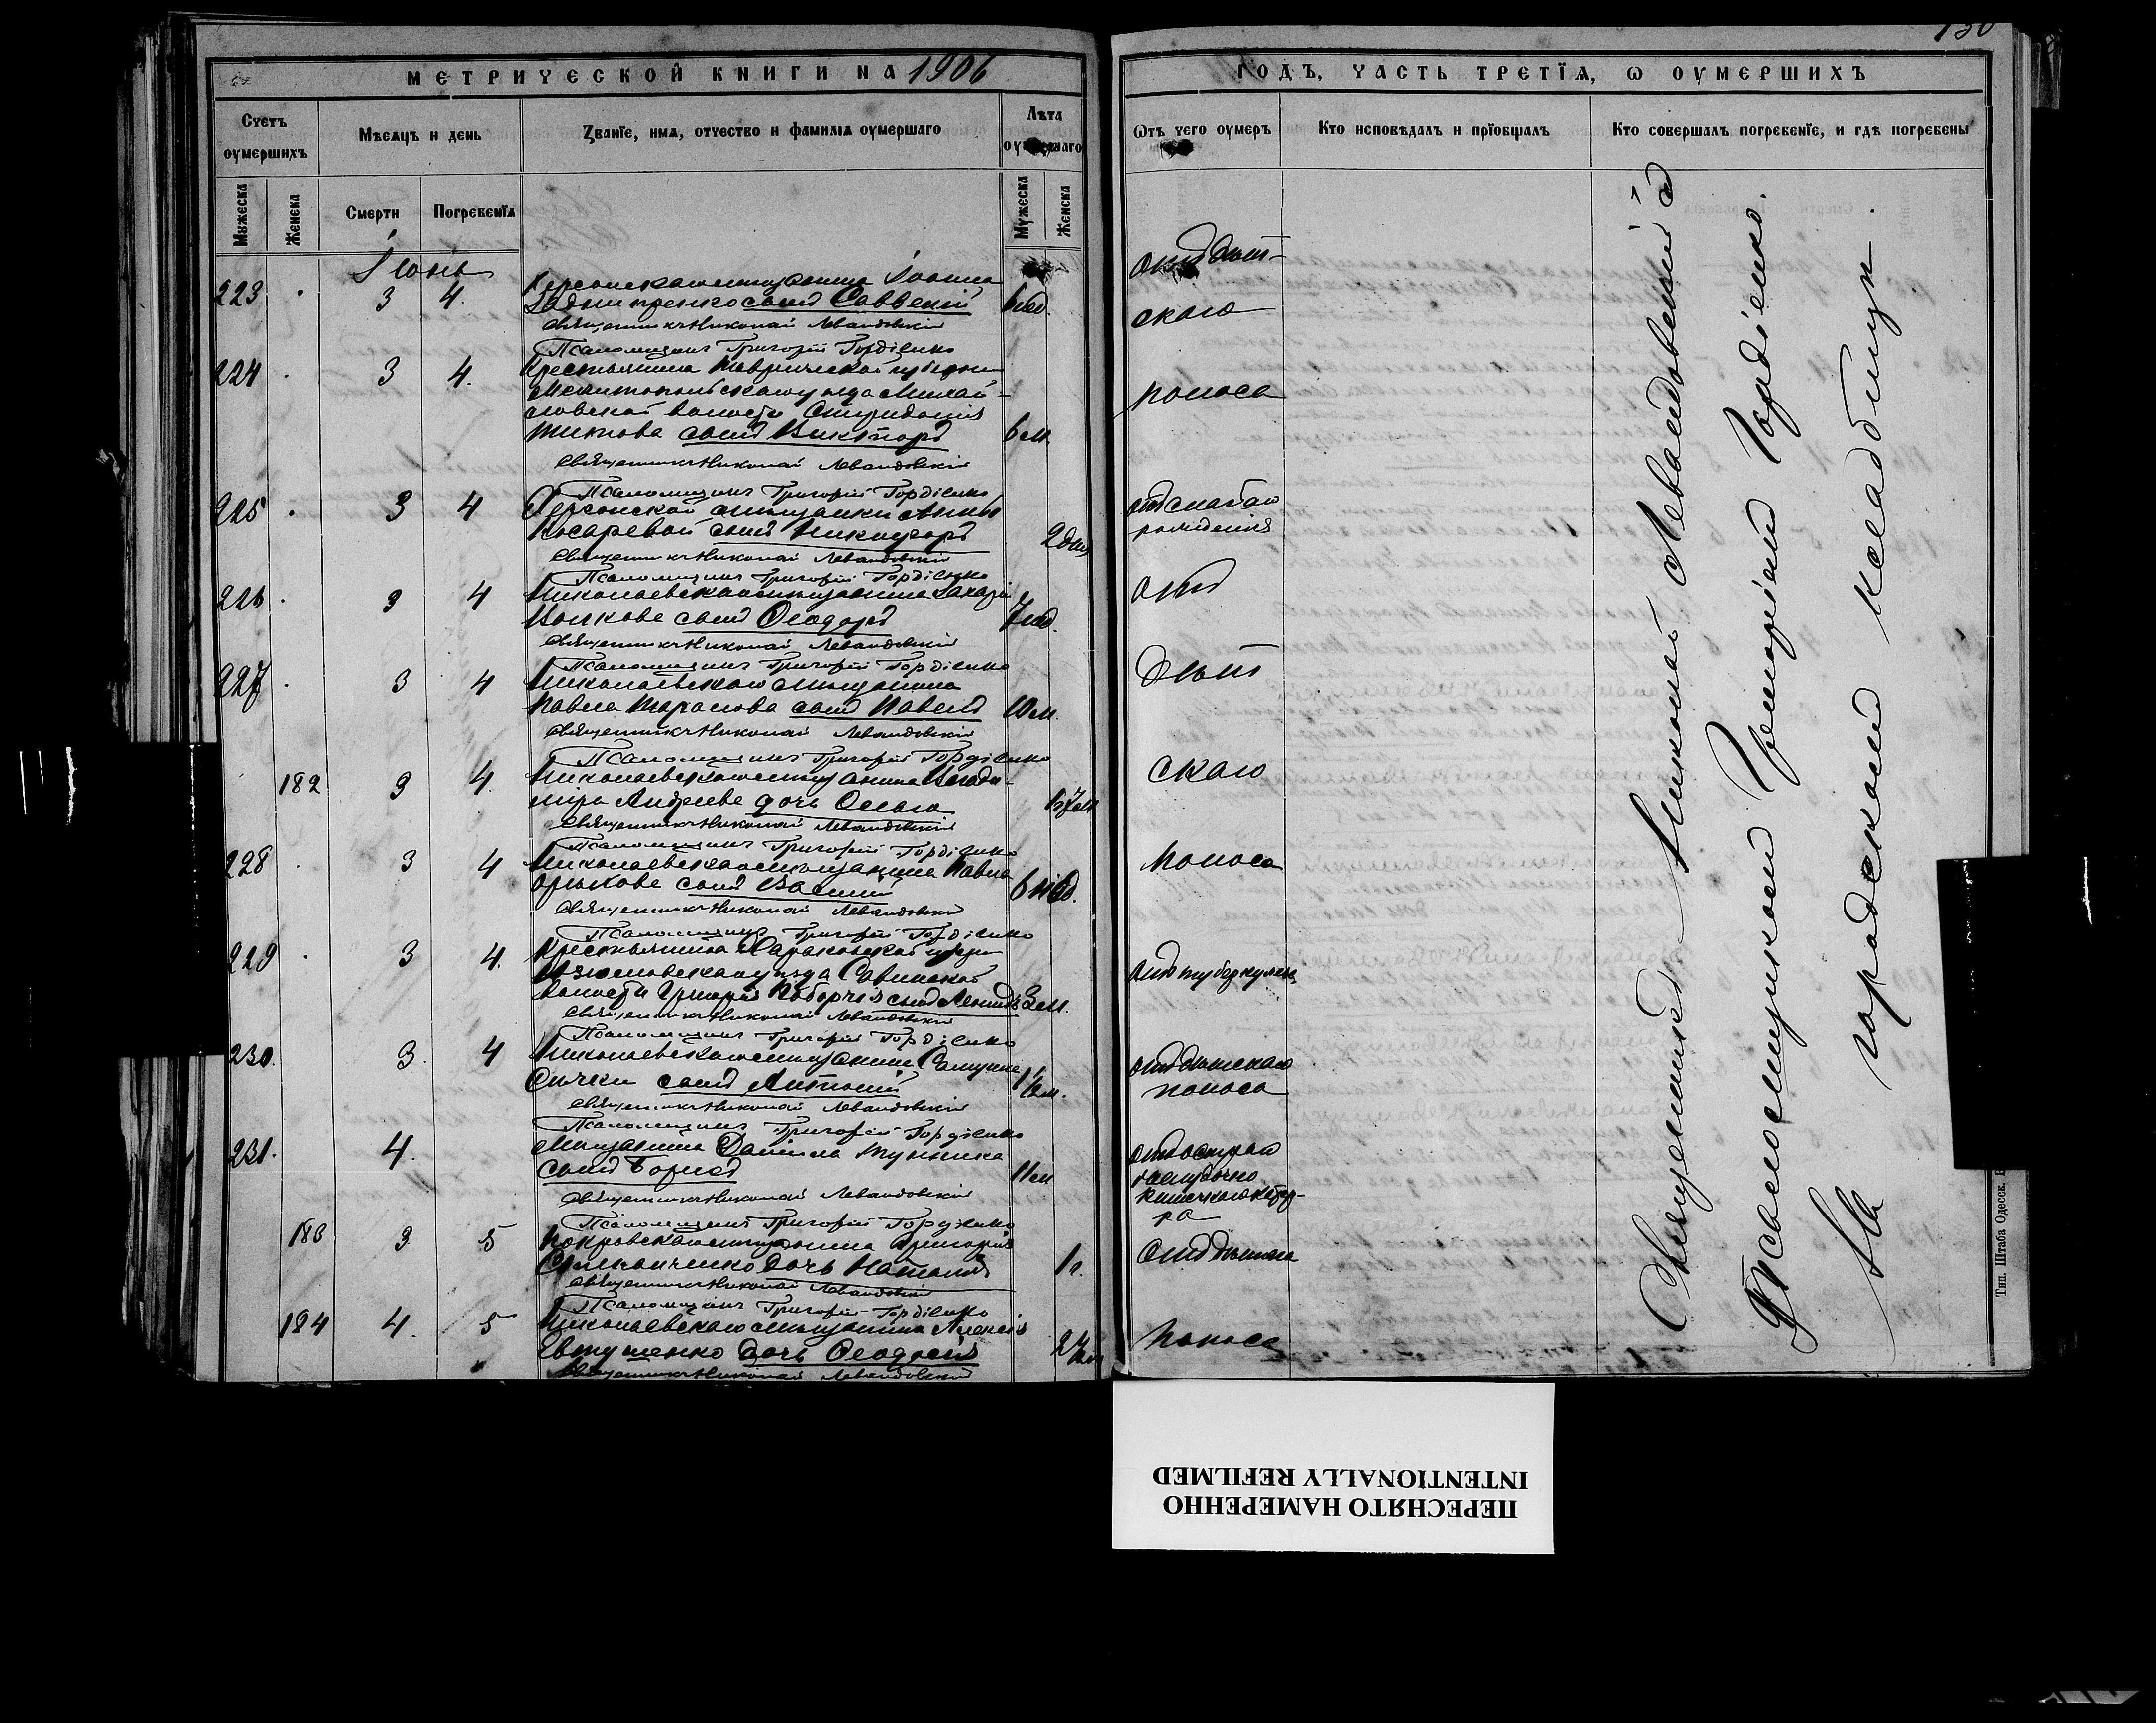 МЕТРИЧЕСКОЙ КНИГИ НА 1906
Счетъ умершихъ
Мѣсяцъ и день
Званіе, имя, отчество и фамилія умершаго
Лѣта умершаго
Мужеска
Женска
Смерти
Погребенія
Мужеска
Женска
Іюнь
223 3 4. Херсонскаго мѣщанина Іоанна
Заднипренко сынъ Савватій 6 нед.
Священникъ Николай Левандовскій
Псаломщикъ Григорій Гордіенко
224 3 4. Крестьянина Таврической губерніи
Мелитопольскаго уѣзда Михай-
ловской волости Спиридонія
Титова сынъ Викторъ 6 м.
Священникъ Николай Левандовскій
Псаломщикъ Григорій Гордіенко
225 3 4 Херсонской мѣщанки Анны
Косаревой сынъ Никифоръ 2 дня
Священникъ Николай Левандовскій
Псаломщикъ Григорій Гордіенко
226 3 4 Николаевскаго мѣщанина Захарія
Волкова сынъ Ѳеодоръ 7 нед.
Священникъ Николай Левандовскій
Псаломщикъ Григорій Гордіенко
227 3 4 Николаевскаго мѣщанина
Павла Таранова сынъ Павелъ 10 м.
Священникъ Николай Левандовскій
Псаломщикъ Григорій Гордіенко
182 3 4. Николаевскаго мѣщанина Влади-
міра Андреева дочь Ольга
Священникъ Николай Левандовскій
Псаломщикъ Григорій Гордіенко
228 3 4 Николаевскаго мѣщанина Павла
сынъ Василій 6 нед.
Священникъ Николай Левандовскій
Псаломщикъ Григорій Гордіенко
229 3 4. Крестьянина Харьковской губерн
Изюмскаго уѣзда Савинской
волости Григорія сынъ Леонидъ 3 м.
Священникъ Николай Левандовскій
Псаломщикъ Григорій Гордіенко
230. 3. 4 Николаевскаго мѣщанина
сынъ Антоній
Священникъ Николай Левандовскій
Псаломщикъ Григорій Гордіенко
231. 4. Мѣщанина Даніила
сынъ Борисъ 11 м
Священникъ Николай Левандовскій
Псаломщикъ Григорій Гордіенко
183 3 5 Покровскаго мѣщанина Григорія
дочь Наталія 1 г.
Священникъ Николай Левандовскій
Псаломщикъ Григорій Гордіенко
184 4. 5 Николаевскаго мѣщанина Алексія
Евтушенко дочь Ѳеодосія
Священникъ Николай Левандовскій
130
ГОДЪ, ЧАСТЬ ТРЕТІЯ, О УМЕРШИХЪ
Отъ чего умеръ
Кто исповѣдалъ и пріобщалъ
Кто совершалъ погребеніе, и гдѣ погребены
отъ дѣт-
скаго
поноса
отъ слабаго
рожденія
отъ
дѣт
скаго
поноса
отъ туберкулеза
отъ дѣтскаго
поноса
отъ остраго
желудочно
кишечнаго катар-
ра
отъ дѣтскаго
поноса
Священникъ Николай Левандовскій съ
Псаломщикомъ Григоріемъ Гордіенко.
На городскомъ кладбищѣ.
Тип. Штаба Одесск.
ПЕРЕСНЯТО НАМЕРЕННО
INTENTIONALLY REFILMED